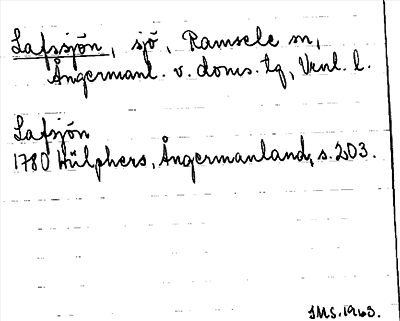 Lafssjön, sjö, Ramsele sn,
Ångermanl. v. doms. tg, Vnl. l.
Lafsjön
1780 Hülphers, Ångermanland, s. 203.
IMS. 1963.